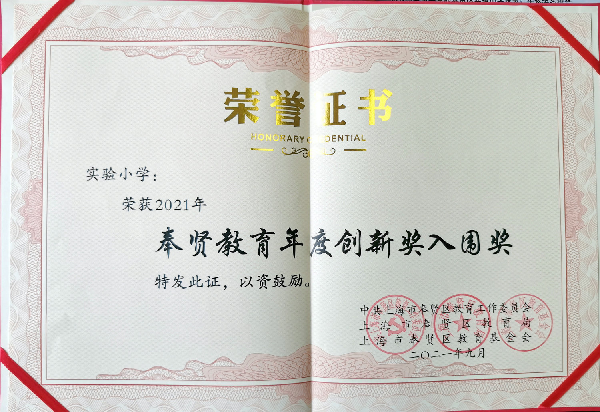 荣誉证书
HONORARY CREDENTIAL
实验小学：
荣获2021年
奉贤教育年度创新奖入围奖
特发此证，以资鼓励。
中共上海市奉贤区教育工作委员会
上海市奉贤区教育局
上海市奉贤区教育基金会
二〇二一年九月